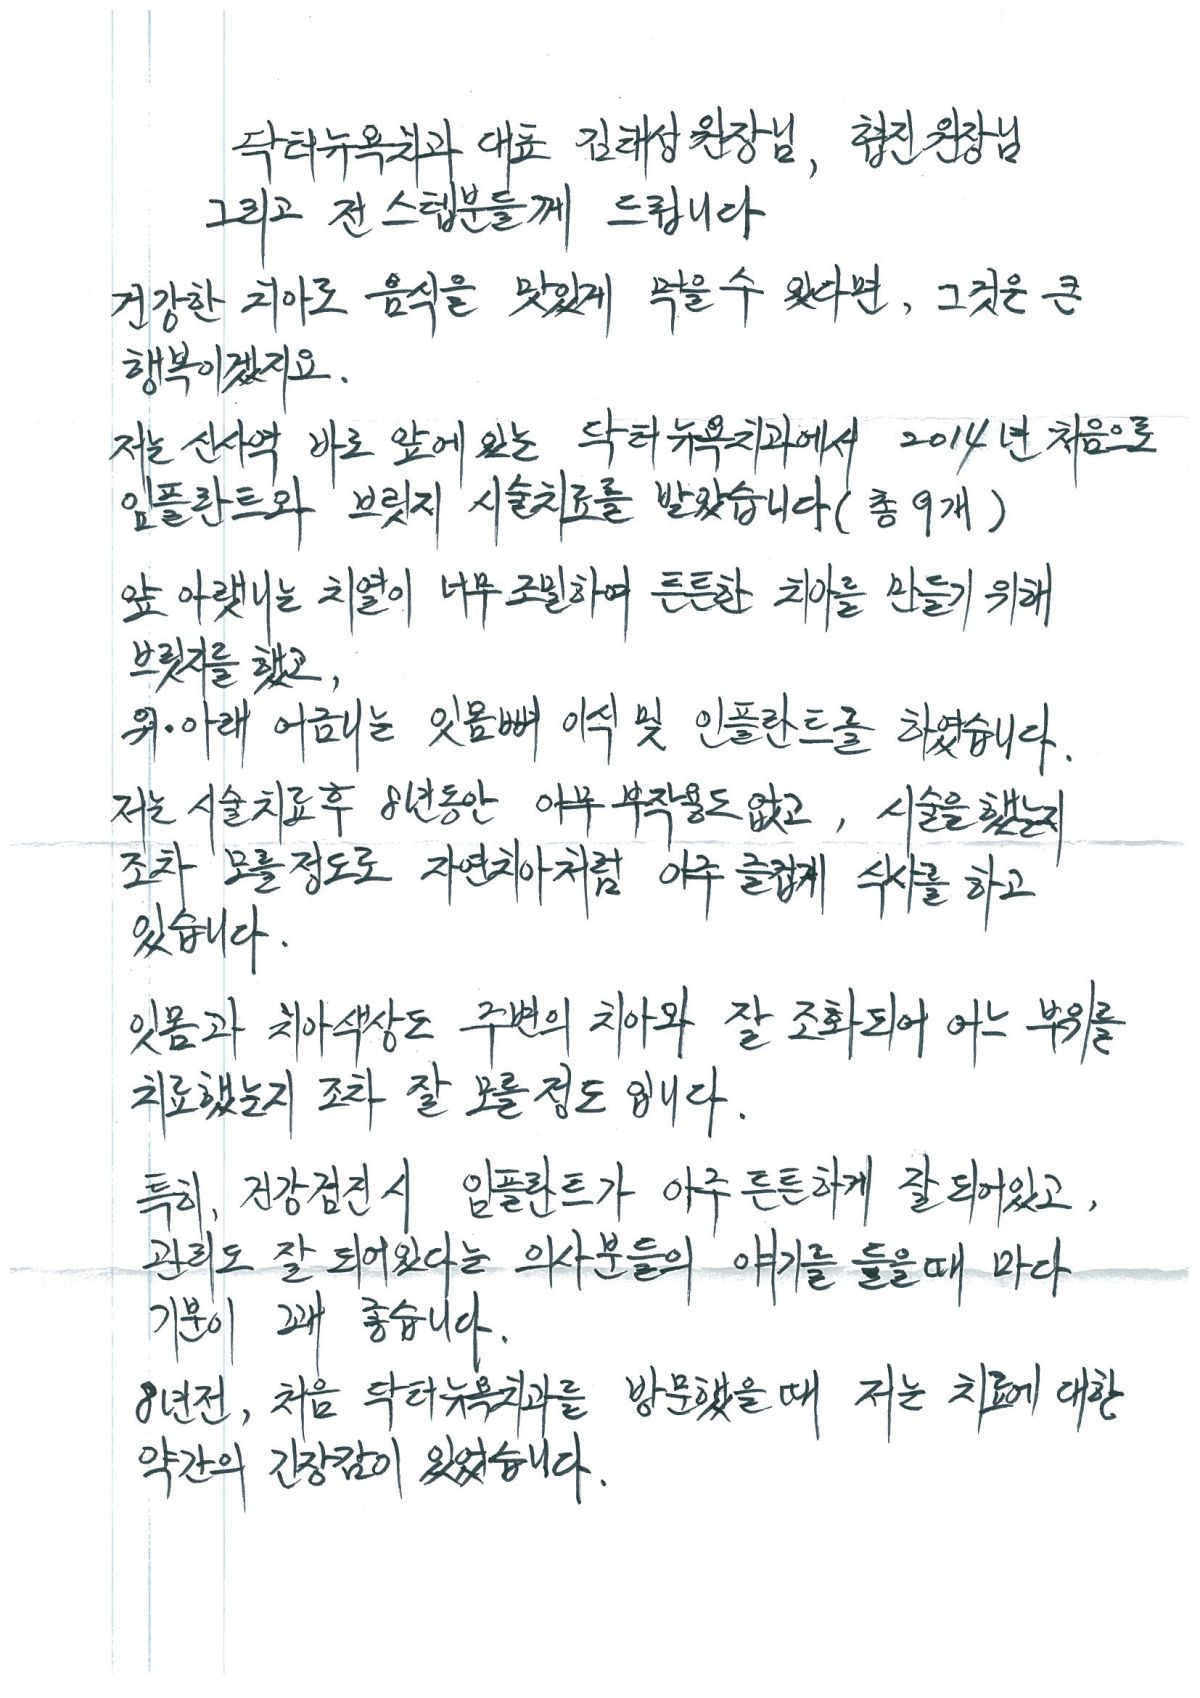 닥터뉴욕치과 대표 김태성 원장님, 협진 원장님
그리고 전 스텝분들께 드립니다
건강한 치아로 음식을 맛있게 먹을 수 있다면, 그것은 큰
행복이겠지요.
저는 신사역 바로 앞에 있는 닥터뉴욕치과에서 2014년 처음으로
임플란트와 브릿지 시술치료를 받았습니다 (총 9개)
앞 아랫니는 치열이 너무 조밀하여 튼튼한 치아를 만들기 위해
브릿지를 했고,
위·아래 어금니는 잇몸뼈 이식 및 인플란트를 하였습니다.
저는 시술치료 후 8년동안 아무 부작용도 없고, 시술을 했는지
조차 모를 정도로 자연치아처럼 아주 즐겁게 식사를 하고
있습니다.
잇몸과 치아색상도 주변의 치아와 잘 조화되어 어느 부위를
치료했는지 조차 잘 모를 정도 입니다.
특히, 건강검진 시 임플란트가 아주 튼튼하게 잘 되어있고,
관리도 잘 되어있다는 의사분들의 얘기를 들을때 마다
기분이 꽤 좋습니다.
8년전, 처음 닥터뉴욕치과를 방문했을 때 저는 치료에 대한
약간의 긴장감이 있었습니다.